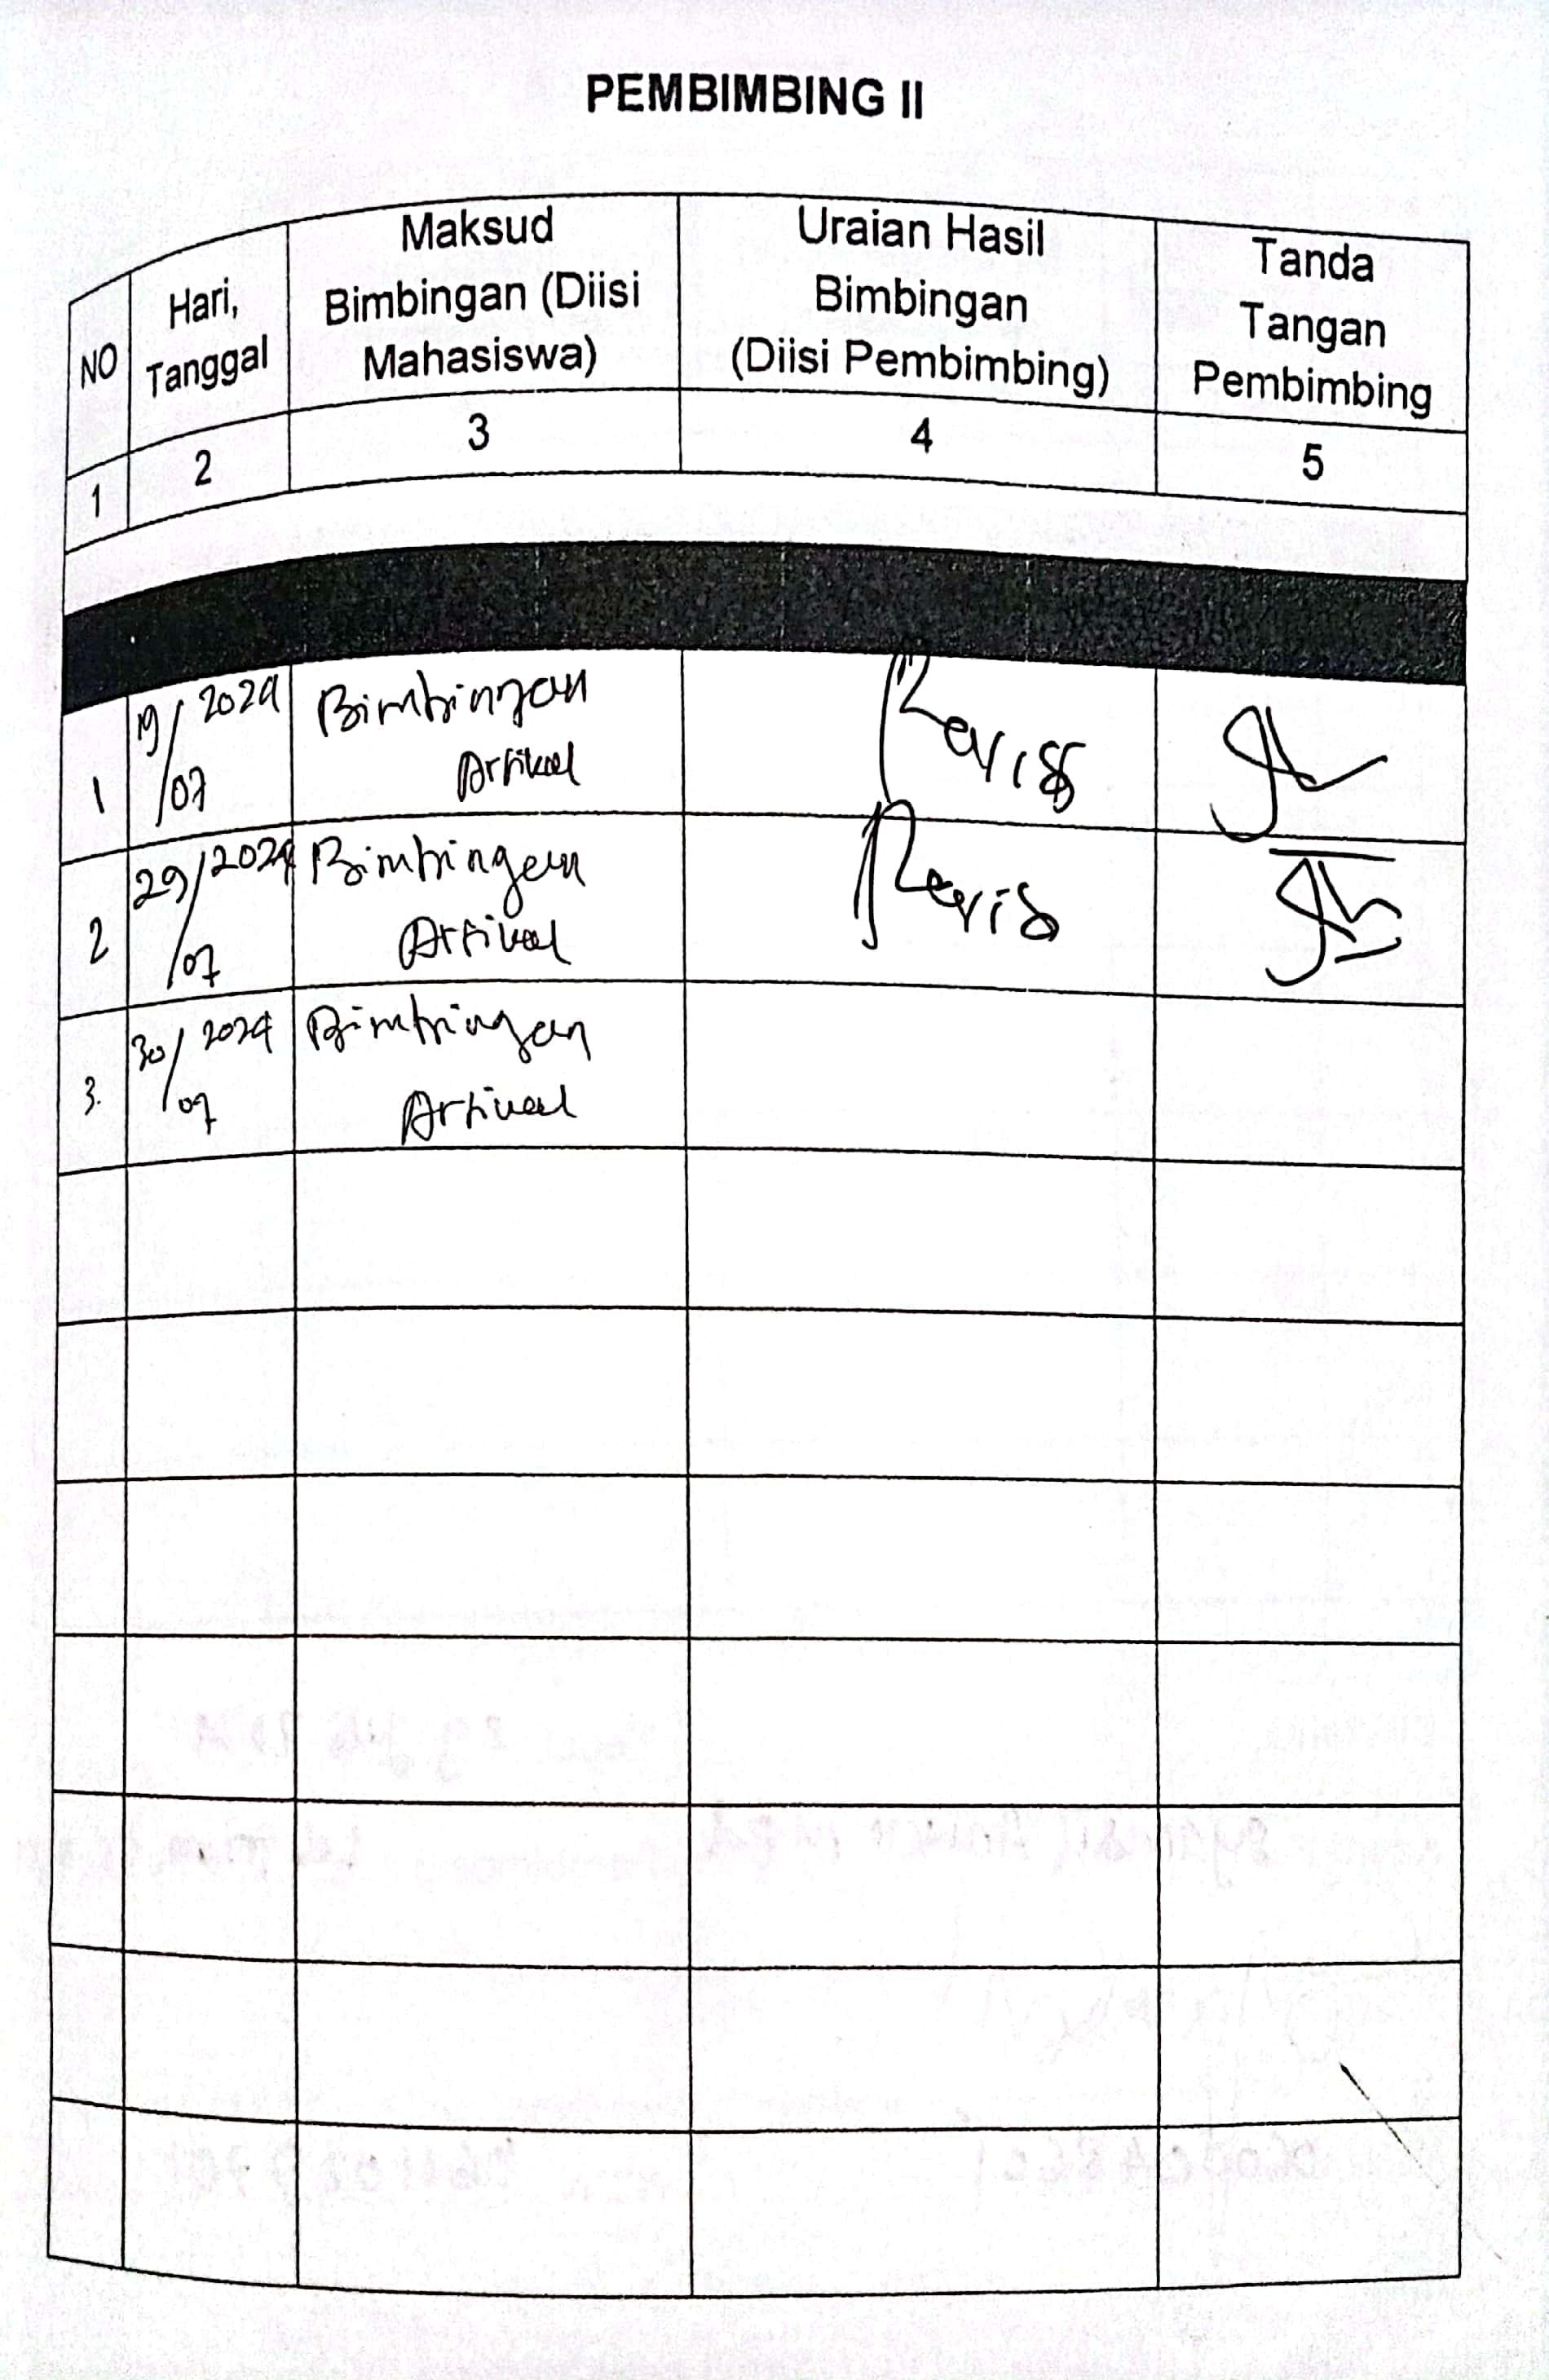 PEMBIMBING II
NO
Hari,
Tanggal
Maksud
Bimbingan (Diisi
Mahasiswa)
Uraian Hasil
Bimbingan
(Diisi Pembimbing)
Tanda
Tangan
Pembimbing
1 2 3 4 5
1 19/07 2024 Bimbingan
Artikel
Revisi
2 29/07 2024 Bimbingan
Artikel
Revisi
3. 30/07 2024 Bimbingan
Artikel